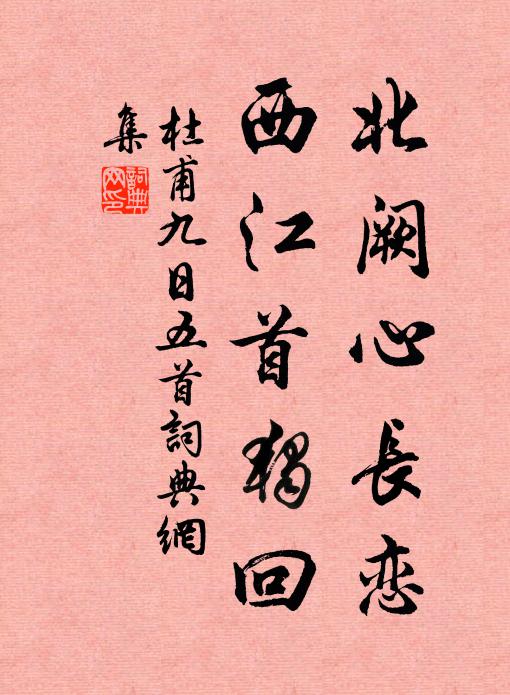 北阙心長恋
西江首獨回
杜甫九日五首詞典網
集
詞典网印